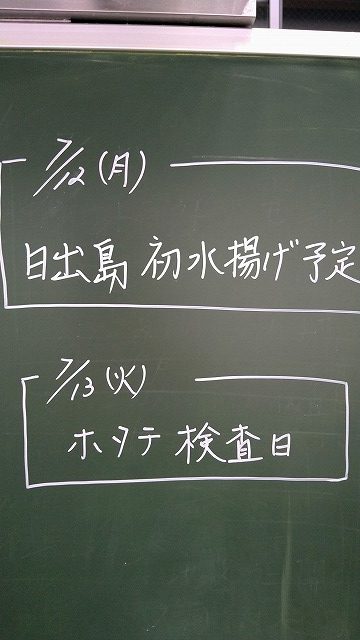 7/12(月)
日出島 初水揚げ予定
7/13(火)
ホタテ 検査日